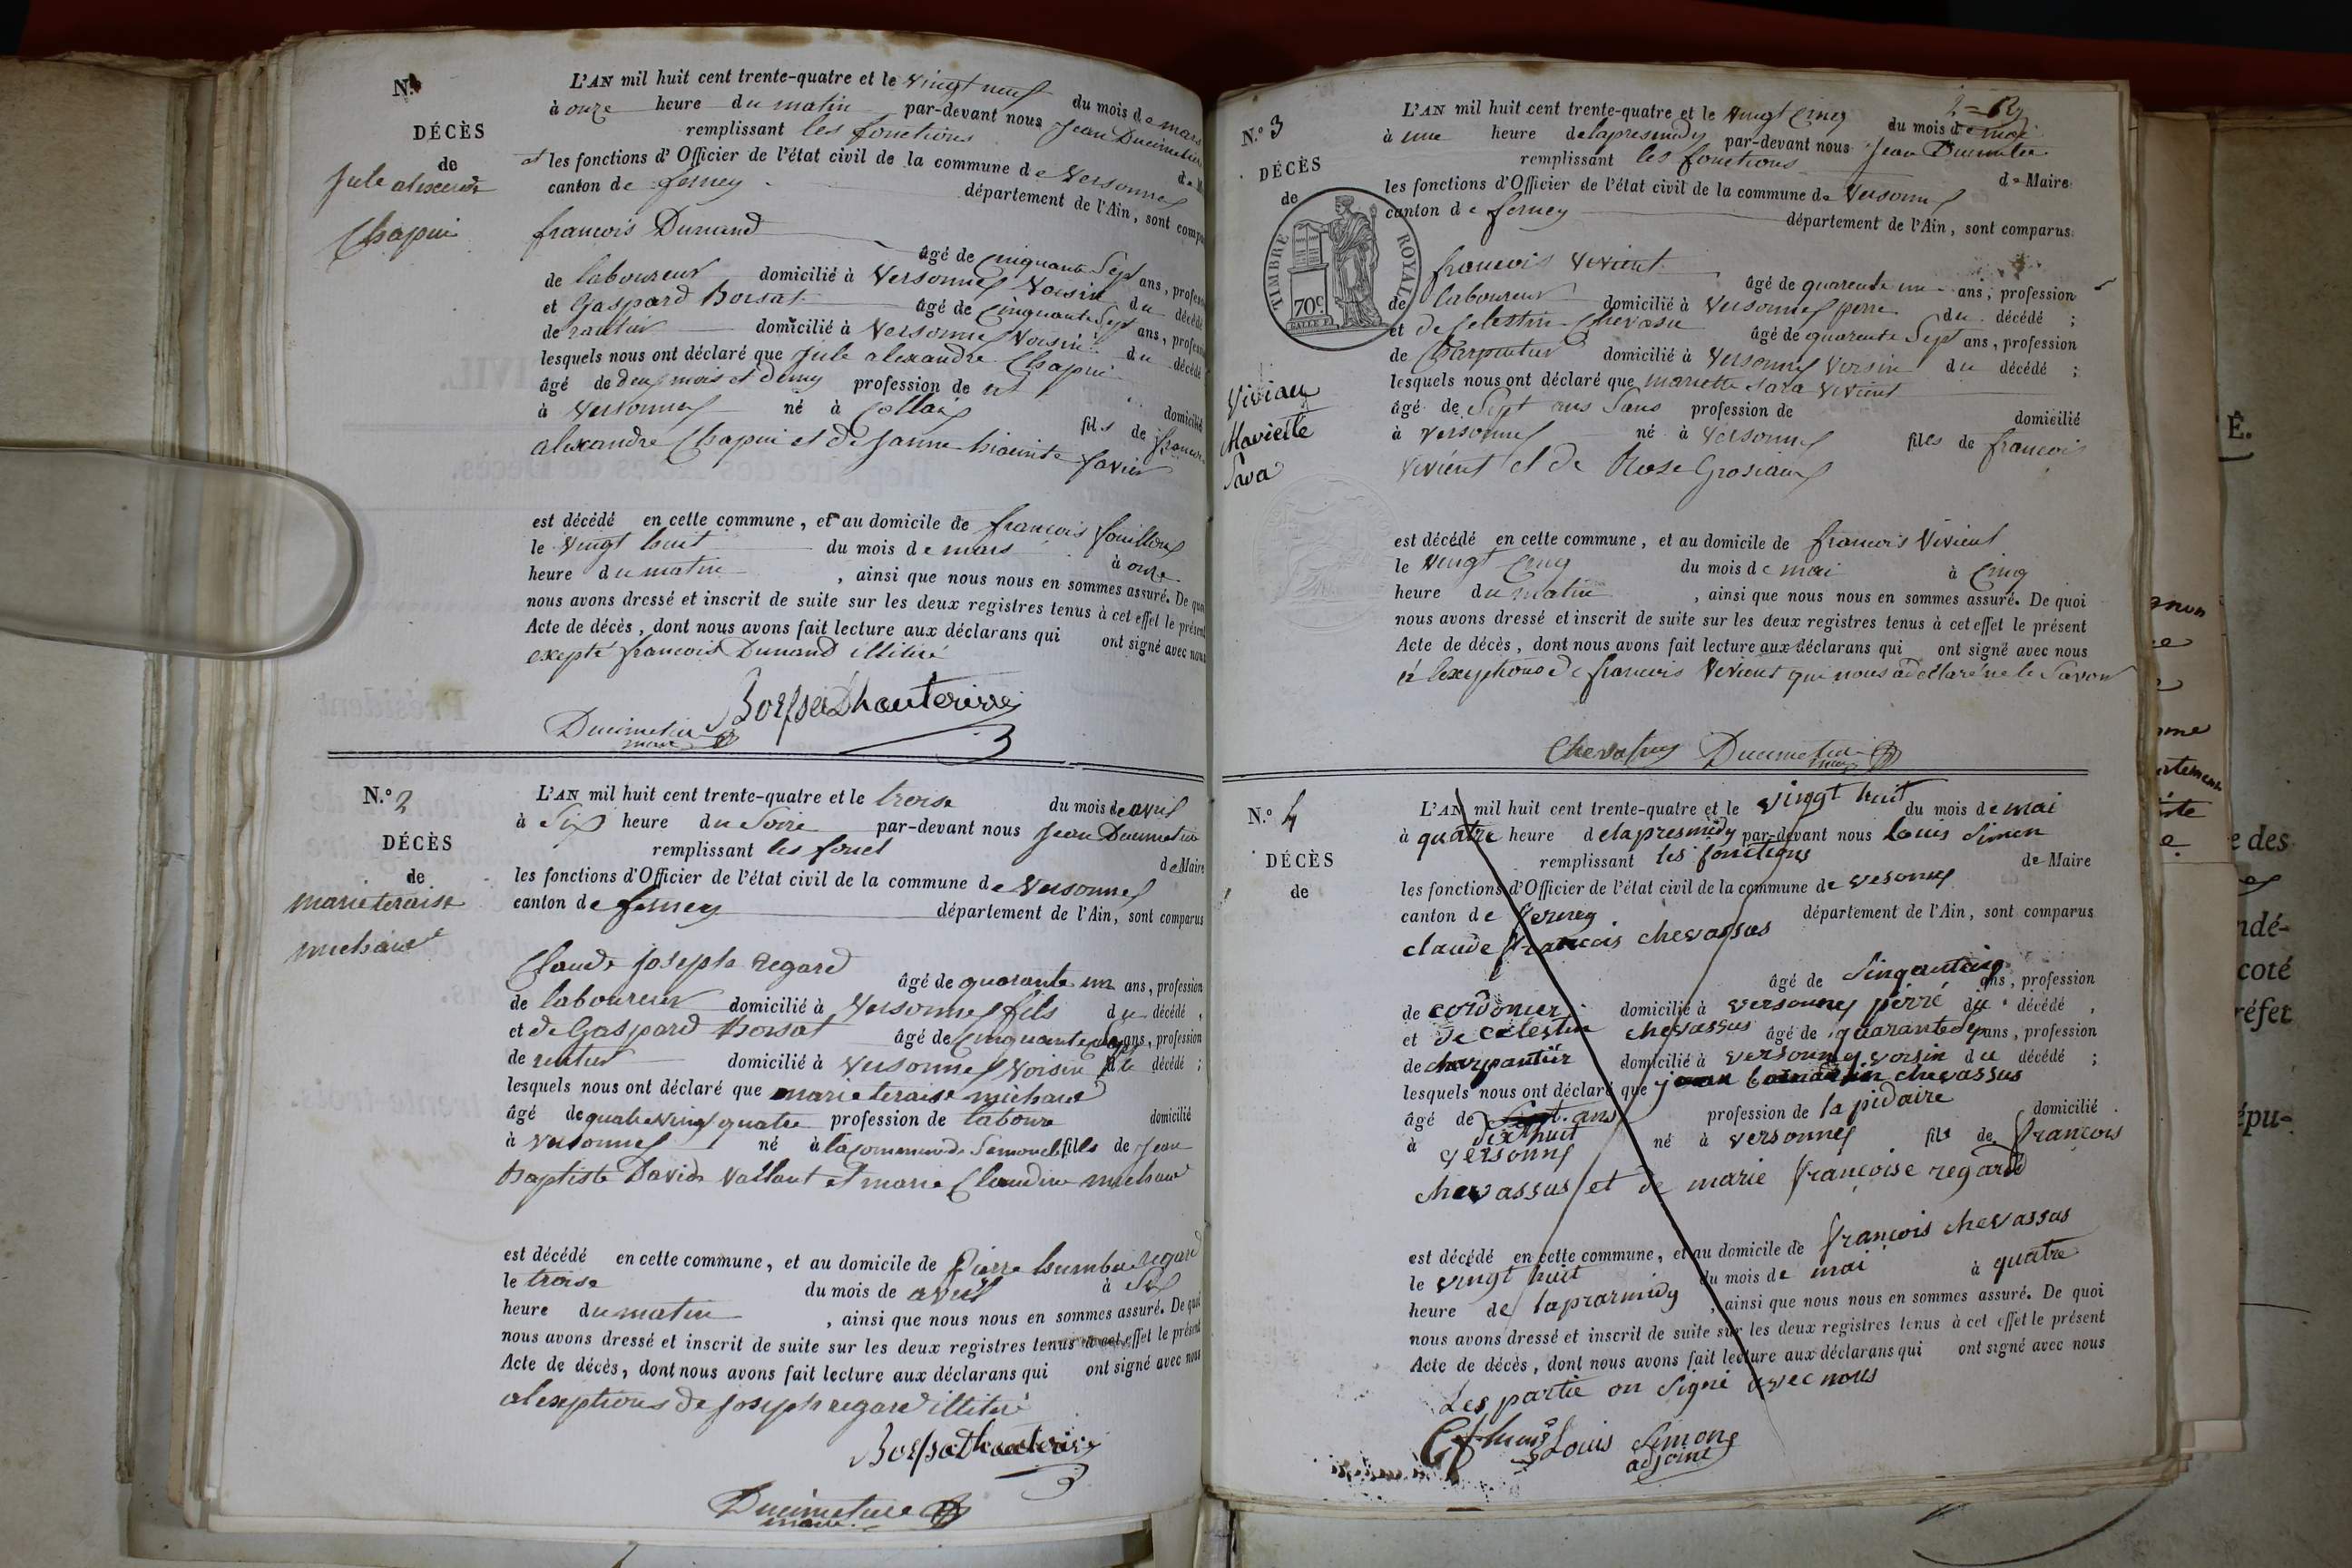 N.º
DÉCÈS
de
Jule alexandre
Chapui
L'AN mil huit cent trente-quatre et le vingt neuf du mois de mars
à onze heure du matin par-devant nous Jean Ducimetiere
remplissant les fonctions
et les fonctions d'Officier de l'état civil de la commune de Versonnex
canton de ferney département de l'Ain, sont compa
francois Dunand
âgé de cinquante Sept ans, profess
de laboureur domicilié à Versonnex Voisin du décédé
et Gaspard Borsat âgé de Cinquante Sept ans, profess
de rentier domicilié à Versonnex Voisin du décédé
lesquels nous ont déclaré que Jule alexandre Chapui
âgé de deux mois et demy profession de domicilié
à Versonnex né à Collaix fils de francois
alexandre Chapui et de Janne hiacinte favier
est décédé en cette commune, et au domicile de francois fouilloux
le Vingt huit du mois de mars à onze
heure du matin, ainsi que nous nous en sommes assuré. De quoi
nous avons dressé et inscrit de suite sur les deux registres tenus à cet effet le présent
Acte de décès, dont nous avons fait lecture aux déclarans qui ont signé avec nous
exepté francois Dunand illitiré
Borssat Dhauterive
Ducimetiere
maire
N.º 2
DÉCÈS
de
marie teraise
michaud
L'AN mil huit cent trente-quatre et le troise du mois de avril
à Six heure du Soire par-devant nous Jean Ducimetiere
remplissant les fonct de Maire
les fonctions d'Officier de l'état civil de la commune de Versonnex
canton de ferney département de l'Ain, sont comparus
Claude joseph Regard
âgé de quarante un ans, profession
de laboureur domicilié à Versonnex fils du décédé,
et de Gaspard Borsat âgé de Cinquante Sept ans, profession
de rentier domicilié à Versonnex Voisin de décédé;
lesquels nous ont déclaré que marie teraise michaud
âgé de quatre Vingt quatre profession de laboure domicilié
à Versonnex né à la commune de Semoncel fills de Jean
Baptiste David Vallant et marie Claudine michaud
est décédé en cette commune, et au domicile de Pierre humber regard
le troise du mois de avril à Six
heure du matin, ainsi que nous nous en sommes assuré. De quoi
nous avons dressé et inscrit de suite sur les deux registres tenus à cet effet le présent
Acte de décès, dont nous avons fait lecture aux déclarans qui ont signé avec nous
alexeptions de Joseph regard illitiré
Borssat Dhauterive
Ducimetiere
maire
N.º 3
DÉCÈS
de
TIMBRE ROYAL
70c.
Viviand
Mariette
Sara
L'AN mil huit cent trente-quatre et le Vingt Cinq du mois de mai
à une heure delapresmidy par-devant nous Jean Ducimetiere
remplissant les fonctions de Maire
les fonctions d'Officier de l'état civil de la commune de Versonnex
canton de ferney département de l'Ain, sont comparus
francois Vivient
âgé de quarente un ans, profession
de laboureur domicilié à Versonnex perre du décédé;
et de Celestin Chevasu âgé de quarente Sept ans, profession
de Charpentier domicilié à Versonnex Voisin du décédé;
lesquels nous ont déclaré que mariette Sara Vivient
âgé de Sept ans Sans profession de domicilié
à Versonnex né à Versonnex files de francois
Vivient et de Rose Grosiaux
est décédé en cette commune, et au domicile de francois Vivient
le Vingt Cinq du mois de mai à Cinq
heure du matin, ainsi que nous nous en sommes assuré. De quoi
nous avons dressé et inscrit de suite sur les deux registres tenus à cet effet le présent
Acte de décès, dont nous avons fait lecture aux déclarans qui ont signé avec nous
lexeptions de francois Vivient qui nous a déclaré ne le Savoir
Chevassus Ducimetiere
maire
N.º 4
DÉCÈS
de
L'AN mil huit cent trente-quatre et le vingt huit du mois de mai
à quatre heure delapresmidy par-devant nous Louis Simon
remplissant les fonctions de Maire
les fonctions d'Officier de l'état civil de la commune de vesonnex
canton de ferney département de l'Ain, sont comparus
claude francois chevassus
âgé de Sinquante ans, profession
de cordonier domicilié à versonnex perré du décédé,
et de celestin chevassus âgé de quarante Sep ans, profession
de charpantier domicilié à versonnex voisin du décédé;
lesquels nous ont déclaré que jean bernardin chevassus
âgé de Sept ans profession de lapidaire domicilié
dix huit
à versonnex né à versonnex fils de francois
chevassus et de marie françoise regard
est décédé en cette commune, et au domicile de françois chevassus
le vingt huit du mois de mai à quatre
heure de laprarmidy, ainsi que nous nous en sommes assuré. De quoi
nous avons dressé et inscrit de suite sur les deux registres tenus à cet effet le présent
Acte de décès, dont nous avons fait lecture aux déclarans qui ont signé avec nous
Les partie on Signé avec nous
Louis Simon
adjoint